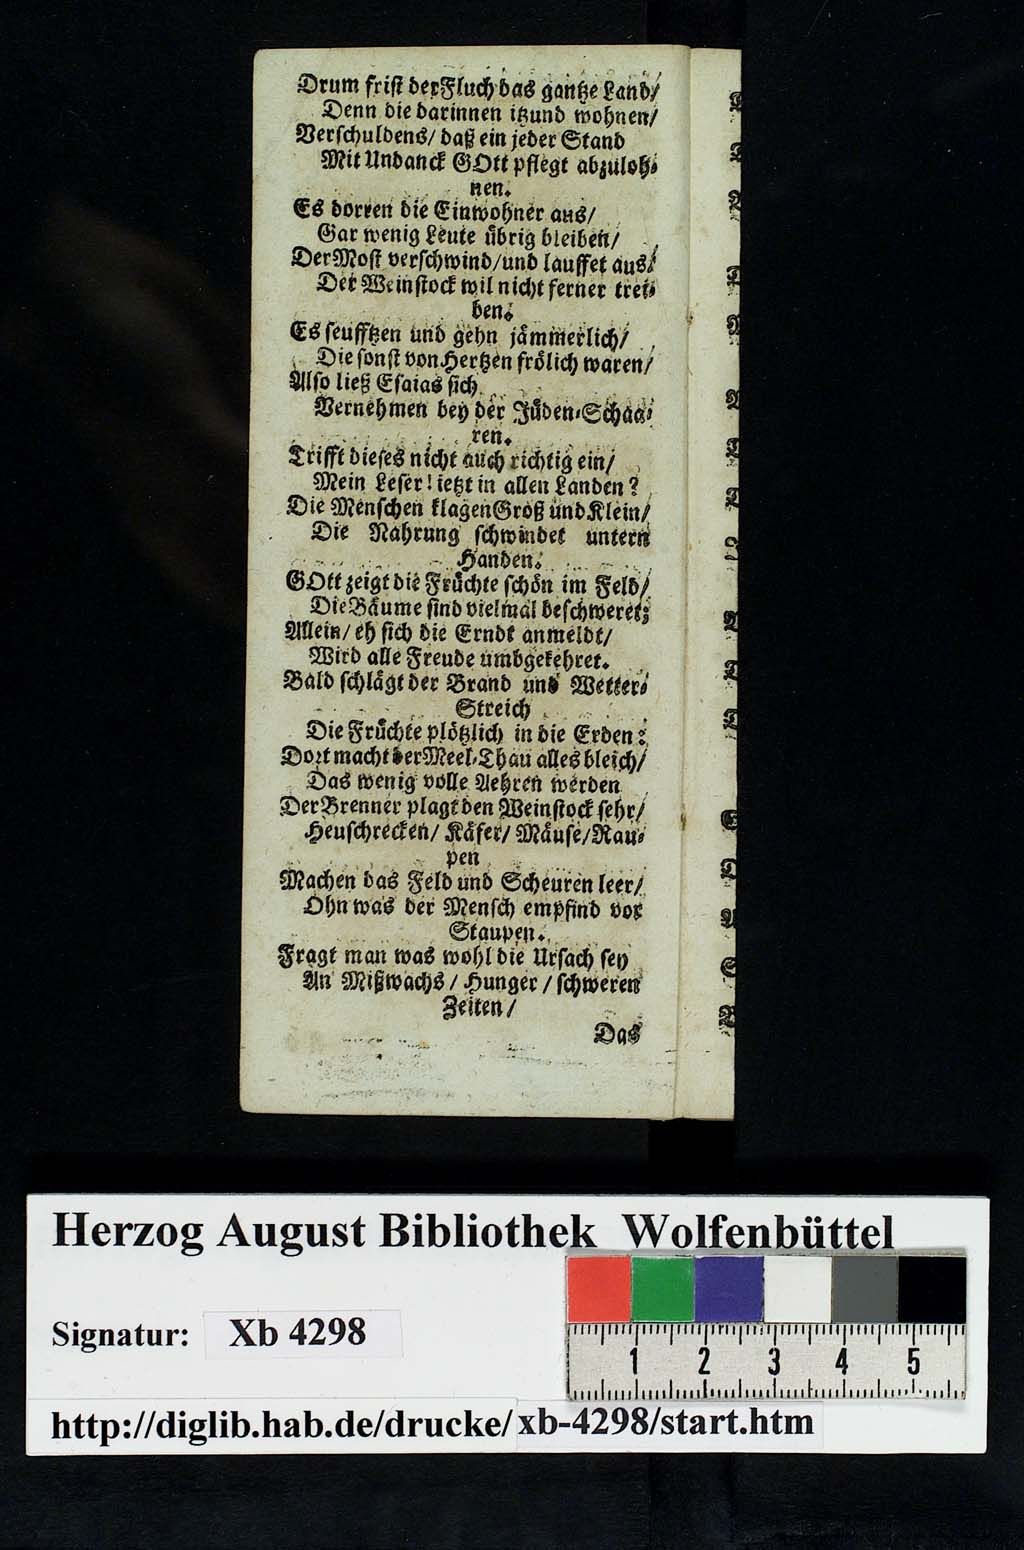 Drum frist der Fluch das gantze Land/
Denn die darinnen itzund wohnen/
Verschuldens/ daß ein jeder Stand
Mit Undanck GOtt pflegt abzuloh-
nen.
Es dorren die Einwohner aus/
Gar wenig Leute übrig bleiben/
Der Most verschwind/und lauffet aus/
Der Weinstock wil nicht ferner trei-
ben.
Es seufftzen und gehn jämmerlich/
Die sonst von Hertzen frölich waren/
Also ließ Esaias sich
Vernehmen bey der Jüden-Schaa-
ren.
Trifft dieses nicht auch richtig ein/
Mein Leser! ietzt in allen Landen?
Die Menschen klagen Groß und Klein/
Die Nahrung schwindet untern
Handen.
GOtt zeigt die Früchte schön im Feld/
Die Bäume sind vielmal beschweret;
Allein/ eh sich die Erndt anmeldt/
Wird alle Freude umbgekehret.
Bald schlägt der Brand und Wetter-
Streich
Die Früchte plötzlich in die Erden:
Dort macht der Meel-Thau alles bleich/
Das wenig volle Aehren werden
Der Brenner plagt den Weinstock sehr/
Heuschrecken/ Käfer/ Mäuse/Rau-
pen
Machen das Feld und Scheuren leer/
Ohn was der Mensch empfind vor
Staupen.
Fragt man was wohl die Ursach sey
An Mißwachs/ Hunger/ schweren
Zeiten/
Das
Herzog August Bibliothek Wolfenbüttel
Signatur: Xb 4298
1 2 3 4 5
http://diglib.hab.de/drucke/xb-4298/start.htm